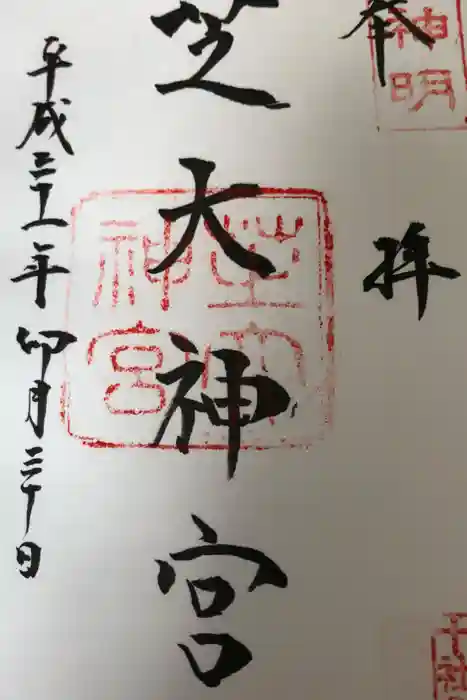 奉拝
神明
芝大神宮
芝大神宮
平成三十一年卯月三十日